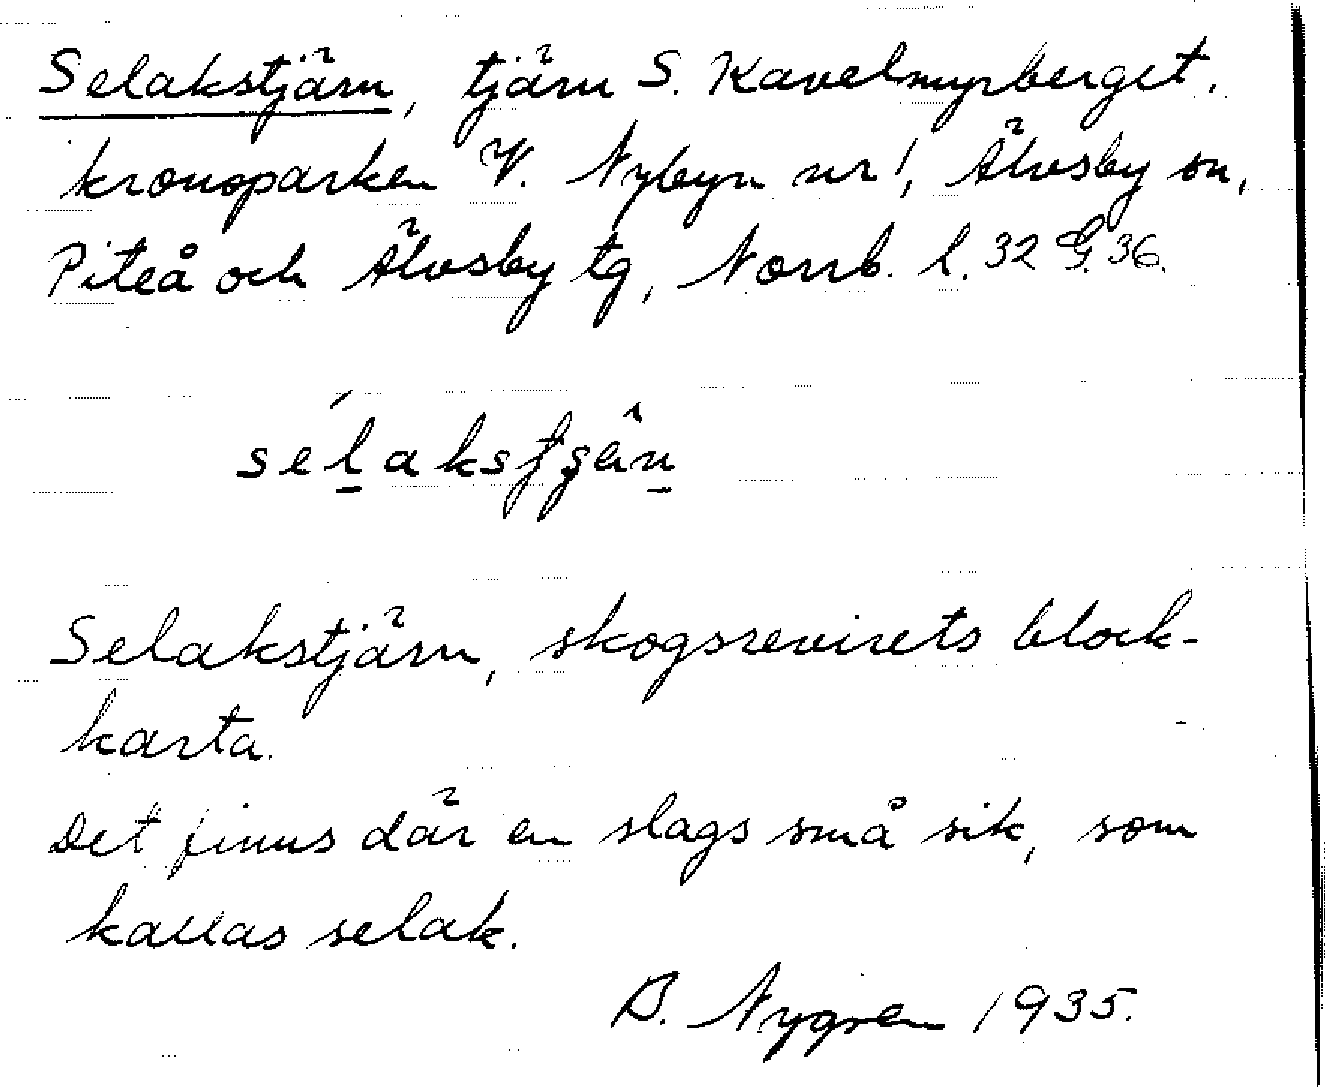 Selakstjärn, tjärn S. Kavelmyrberget.
kronoparken V. Nybyn nr 1, Älvsby sn,
Piteå och Älvsby tg, Norrb. l. 32 G. 36.
Selakstjärn, skogsrevirets block-
karta.
Det finns där en slags små sik, som
kallas selak.
B. Nygren 1935.